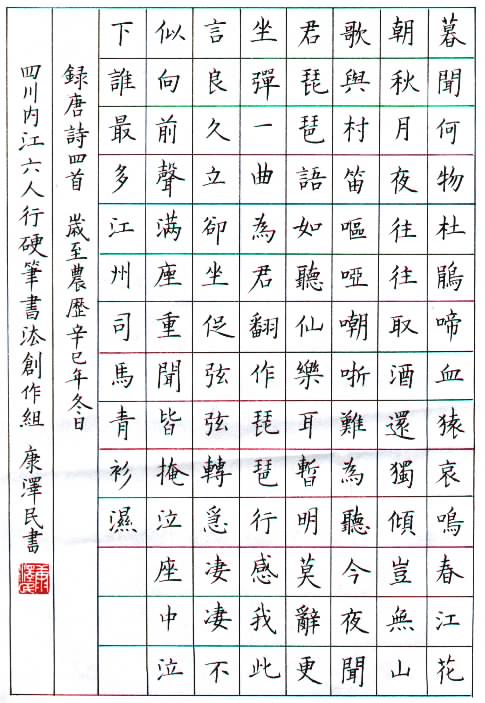 暮聞何物杜鵑啼血猿哀鳴春江花
朝秋月夜往往取酒還獨傾豈無山
歌與村笛嘔啞嘲哳難為聽今夜聞
君琵琶語如聽仙樂耳暫明莫辭更
坐彈一曲為君翻作琵琶行感我此
言良久立卻坐促弦弦轉急凄凄不
似向前聲滿座重聞皆掩泣座中泣
下誰最多江州司馬青衫濕
録唐詩四首 歲至農歷辛巳年冬日
四川内江六人行硬筆書法創作組 康澤民書